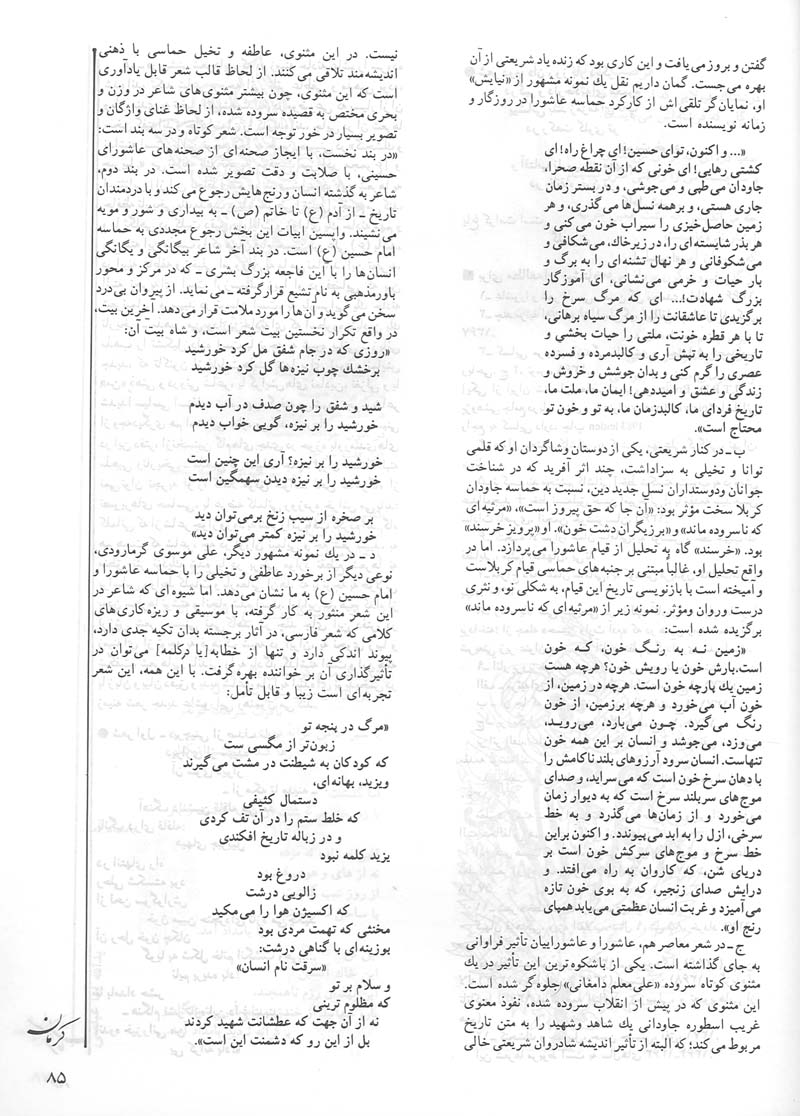 گفتن و بروز می‌یافت و این کاری بود که زنده یاد شریعتی از آن
بهره می‌جست. گمان داریم نقل یك نمونه مشهور از «نیایش»
او، نمایان‌گر تلقی‌اش از کارکرد حماسه عاشورا در روزگار و
زمانه نویسنده است.
«... و اکنون، توای حسین! ای چراغ راه! ای
کشتی رهایی! ای خونی که از آن نقطه صحرا،
جاودان می‌طپی و می‌جوشی، و در بستر زمان
جاری هستی، و برهمه نسل‌ها می‌گذری، و هر
زمین حاصل‌خیزی را سیراب خون می‌کنی و
هر بذر شایسته‌ای را، در زیرخاك، می‌شکافی و
می‌شکوفانی و هر نهال تشنه‌ای را به برگ و
بار حیات و خرمی می‌نشانی، ای آموزگار
بزرگ شهادت!... ای که مرگ سرخ را
برگزیدی تا عاشقانت را از مرگ سیاه برهانی،
تا با هر قطره خونت، ملتی را حیات بخشی و
تاریخی را به تپش آری و کالبدمرده و فسرده
عصری را گرم کنی و بدان جوشش و خروش و
زندگی و عشق و امیددهی! ایمان ما، ملت ما،
تاریخ فردای ما، کالبدزمان ما، به تو و خون تو
محتاج است».
ب ـ در کنار شریعتی، یکی از دوستان و شاگردان او که قلمی
توانا و تخیلی به سزاداشت، چند اثر آفرید که در شناخت
جوانان ودوستداران نسل جدید دین، نسبت به حماسه جاودان
کربلا سخت مؤثر بود: «آن جا که حق پیروز است»، «مرثیه‌ای
که ناسروده ماند» و «برزیگران دشت خون». او «پرویز خرسند»
بود. «خرسند» گاه به تحلیل از قیام عاشورا می‌پردازد. اما در
واقع تحلیل او، غالباً مبتنی بر جنبه‌های حماسی قیام کربلاست
و آمیخته است با بازنویسی تاریخ این قیام، به شکلی نو، و نثری
درست وروان ومؤثر. نمونه زیر از «مرثیه‌ای که ناسروده ماند»
برگزیده شده است:
«زمین نه به رنگ خون، که خون
است.بارش خون یا رویش خون؟ هرچه هست
زمین یك پارچه خون است. هرچه در زمین، از
خون آب می‌خورد و هرچه برزمین، از خون
رنگ می‌گیرد. چون می‌بارد، می‌روید،
می‌وزد، می‌جوشد و انسان بر این همه خون
تنهاست. انسان سرود آرزوهای بلند ناکامش را
با دهان سرخ خون است که می‌سراید، و صدای
موج‌های سربلند سرخ است که به دیوار زمان
می‌خورد و از زمان‌ها می‌گذرد و به خط
سرخی، ازل را به ابد می‌پیوندد. و اکنون براین
خط سرخ و موج‌های سرکش خون است بر
دریای شن، که کاروان به راه می‌افتد. و
درایش صدای زنجیر، که به بوی خون تازه
می‌آمیزد و غربت انسان عظمتی می‌یابد همپای
رنج او».
ج ـ در شعر معاصر هم، عاشورا و عاشوراییان تأثیر فراوانی
به جای گذاشته است. یکی از باشکوه ترین این تأثیر در یك
مثنوی کوتاه سروده «علی معلم دامغانی» جلوه‌گر شده است.
این مثنوی که در پیش از انقلاب سروده شده، نفوذ معنوی
غریب اسطوره جاودانی یك شاهد وشهید را به متن تاریخ
مربوط می‌کند؛ که البته از تأثیر اندیشه شادروان شریعتی خالی
نیست. در این مثنوی، عاطفه و تخیل حماسی با ذهنی
اندیشه‌مند تلاقی می‌کنند. از لحاظ قالب شعر قابل یادآوری
است که این مثنوی، چون بیشتر مثنوی‌های شاعر در وزن و
بحری مختص به قصیده سروده شده، از لحاظ غنای واژگان و
تصویر بسیار در خور توجه است. شعر کوتاه و در سه بند است:
«در بند نخست، با ایجاز صحنه‌ای از صحنه‌های عاشورای
حسینی، با صلابت و دقت تصویر شده است. در بند دوم،
شاعر به گذشته انسان و رنج‌هایش رجوع می‌کند و با دردمندان
تاریخ ـ از آدم (ع) تا خاتم (ص) ـ به بیداری و شور و مویه
می‌نشیند. واپسین ابیات این بخش رجوع مجددی به حماسه
امام حسین (ع) است. در بند آخر شاعر بیگانگی و یگانگی
انسان‌ها را با این فاجعه بزرگ بشری ـ که در مرکز و محور
باورمذهبی به نام تشیع قرارگرفته ـ می‌نماید. از پیروان بی‌درد
سخن می‌گوید و آن‌ها را مورد ملامت قرار می‌دهد. آخرین بیت،
در واقع تکرار نخستین بیت شعر است، و شاه بیت آن:
«روزی که در جام شفق مل کرد خورشید
برخشك چوب نیزه‌ها گل کرد خورشید
شید و شفق را چون صدف در آب دیدم
خورشید را بر نیزه، گویی خواب دیدم
خورشید را بر نیزه؟ آری این چنین است
خورشید را بر نیزه دیدن سهمگین است
بر صخره از سیب زنخ برمی‌توان دید
خورشید را بر نیزه کمتر می‌توان دید»
د ـ در یك نمونه مشهور دیگر، علی موسوی گرمارودی،
نوعی دیگر از برخورد عاطفی و تخیلی را با حماسه عاشورا و
امام حسین (ع) به ما نشان می‌دهد. اما شیوه‌ای که شاعر در
این شعر منثور به کار گرفته، با موسیقی و ریزه کاری‌های
کلامی که شعر فارسی، در آثار برجسته بدان تکیه جدی دارد،
پیوند اندکی دارد و تنها از خطابه[یا درکلمه] می‌توان در
تأثیرگذاری آن بر خواننده بهره‌گرفت. با این همه، این شعر
تجربه‌ای است زیبا و قابل تأمل:
«مرگ در پنجه تو
زبون‌تر از مگسی ست
که کودکان به شیطنت در مشت می‌گیرند
ویزید، بهانه‌ای،
دستمال کثیفی
که خلط ستم را در آن تف کردی
و در زباله تاریخ افکندی
یزید کلمه نبود
دروغ بود
زالویی درشت
که اکسیژن هوا را می‌مکید
مخنثی که تهمت مردی بود
بوزینه‌ای با گناهی درشت:
«سرقت نام انسان»
و سلام بر تو
که مظلوم ترینی
نه از آن جهت که عطشانت شهید کردند
بل از این رو که دشمنت این است».
کرمان
۸۵